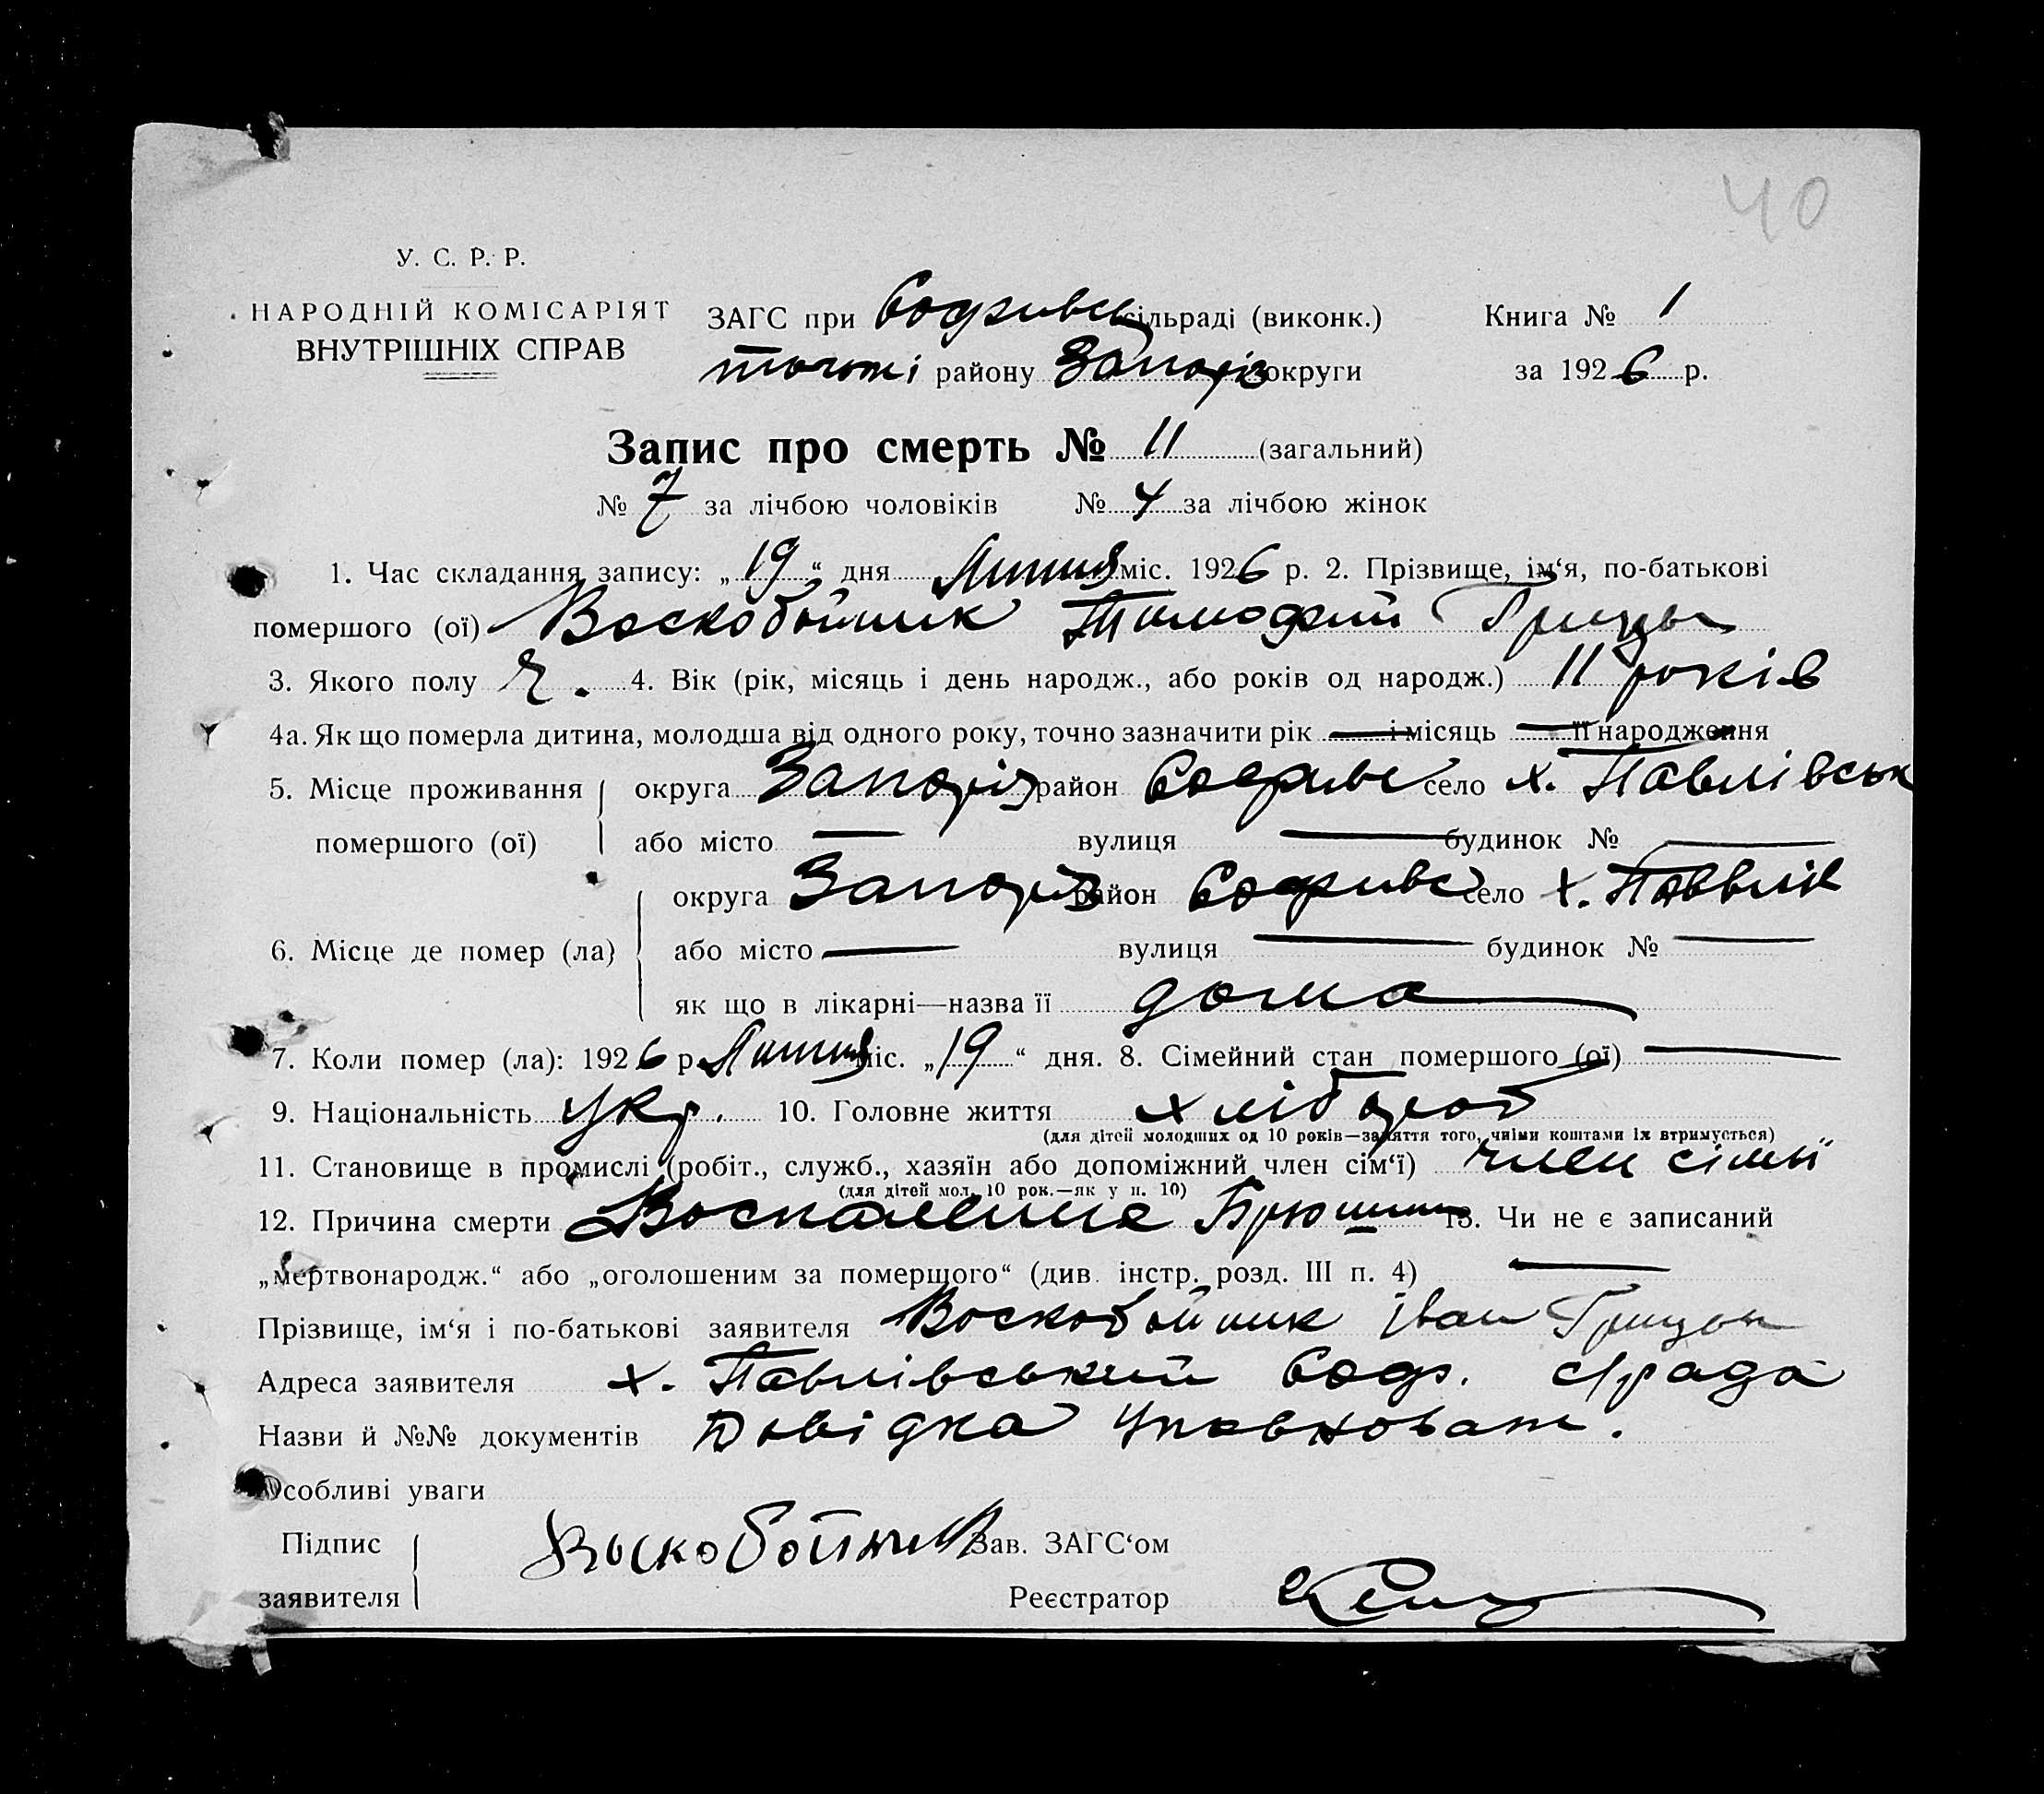 40
У. С. Р. Р.
НАРОДНІЙ КОМІСАРІЯТ
ВНУТРІШНІХ СПРАВ
ЗАГС при Софиївс сільраді (виконк.)
району Запоріз округи
Книга № 1
за 1926 р.
Запис про смерть № 11 (загальний)
№ 7 за лічбою чоловіків № 4 за лічбою жінок
1. Час складання запису: „19“ дня Липня міс. 1926 р. 2. Прізвище, ім‘я, по-батькові
помершого (ої) Воскобойник Тимофий Грицьк
3. Якого полу Ч. 4. Вік (рік, місяць і день народж., або років од народж.) 11 років
4а. Як що померла дитина, молодша від одного року, точно зазначити рік — і місяць — її народження
5. Місце проживання помершого (ої) округа Запоріз район Софиївс село х. Павлівськ
або місто — вулиця — будинок № —
6. Місце де помер (ла) округа Запоріз район Софиївс село х. Павлів
або місто — вулиця — будинок № —
як що в лікарні—назва її дома
7. Коли помер (ла): 1926 р. Липня міс. „19“ дня. 8. Сімейний стан помершого (ої) —
9. Національність Укр. 10. Головне життя хлібороб
(для дітей молодших од 10 років—заняття того, чиїми коштами їх втримується)
11. Становище в промислі (робіт., служб., хазяїн або допоміжний член сім‘ї) член сімьї
(для дітей мол. 10 рок.—як у п. 10)
12. Причина смерти Воспаление Брюшини 13. Чи не є записаний
„мертвонародж.“ або „оголошеним за помершого“ (див. інстр. розд. III п. 4) —
Прізвище, ім‘я і по-батькові заявителя Воскобойник Іван Грицьк
Адреса заявителя х. Павлівський Соф. с/рада
Назви й №№ документів Довідка Уповноваж.
Особливі уваги
Підпис заявителя Воскобойник Зав. ЗАГС‘ом
Реєстратор